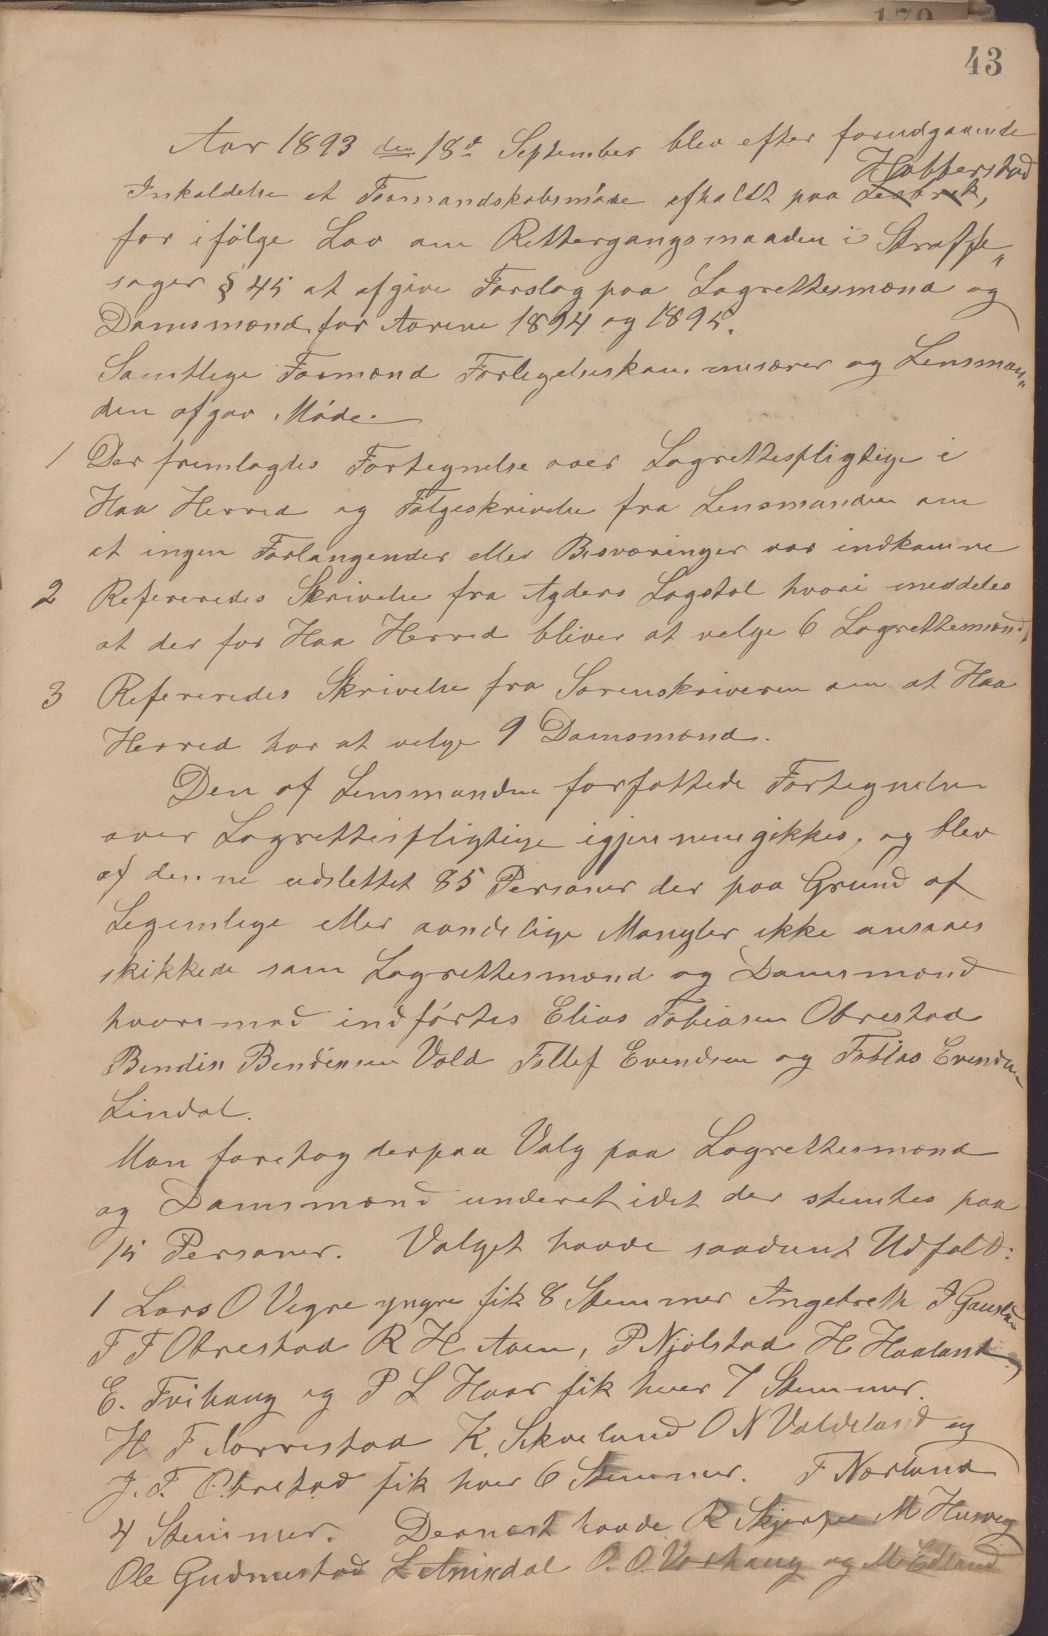 43
Aar 1893 den 18de September blev efter forudgaaende
Indkaldelse et Formandskabsmöde afholdt paa Hobberstad
for ifölge Lov om Rettergangsmaaden i Straffe"
sager § 45 at afgive Forslag paa Lagrettesmænd og
Domsmænd for Aarene 1894 og 1895.
Samtlige Formænd Forligelseskommisærer og Lensman"
den afgav Möde.
1 Der fremlagdes Fortegnelse over Lagrettespligtige i
Haa Herred og Fölgeskrivelse fra Lensmanden om
at ingen Forlangender eller Besværinger var indkomne
2 Refereredes Skrivelse fra Agders Lagstol hvori meddeles
at der for Haa Herred bliver at velge 6 Lagrettesmænd,
3 Refereredes Skrivelse fra Sorenskriveren om at Haa
Herred har at velge 9 Domsmænd.
Den af Lensmanden forfattede Fortegnelse
over Lagrettespligtige igjennemgikkes, og blev
af denne udslettet 85 Personer der paa Grund af
Legemlige eller aandelige Mangler ikke ansaaes
skikkede som Lagrettesmænd og Domsmænd
hvorimod indförtes Elias Tobiasen Obrestad
Bendix Bendixsen Vold Tollef Evendsen og Tobias Evendsen
Lindal.
Man foretog derpaa Valg paa Lagrettesmænd
og Domsmænd underet idet der stemtes paa
15 Personer. Valget havde saadant Udfald:
1 Lars O Vigre yngre fik 8 Stemmer Ingebreth J Gausland
T T Obrestad R H Aven, P Njølstad H Haaland
E. Tvihaug og P L Haar fik hver 7 Stemmer.
H T Torristad K. Skreland O N Valdeland og
J. T. Obrestad fik hver 6 Stemmer. T Nærland
4 Stemmer. Dernæst havde R Skjerpe M Husveg
Ole Gudmestad L Aniksdal O. O. Varhaug og M Edland